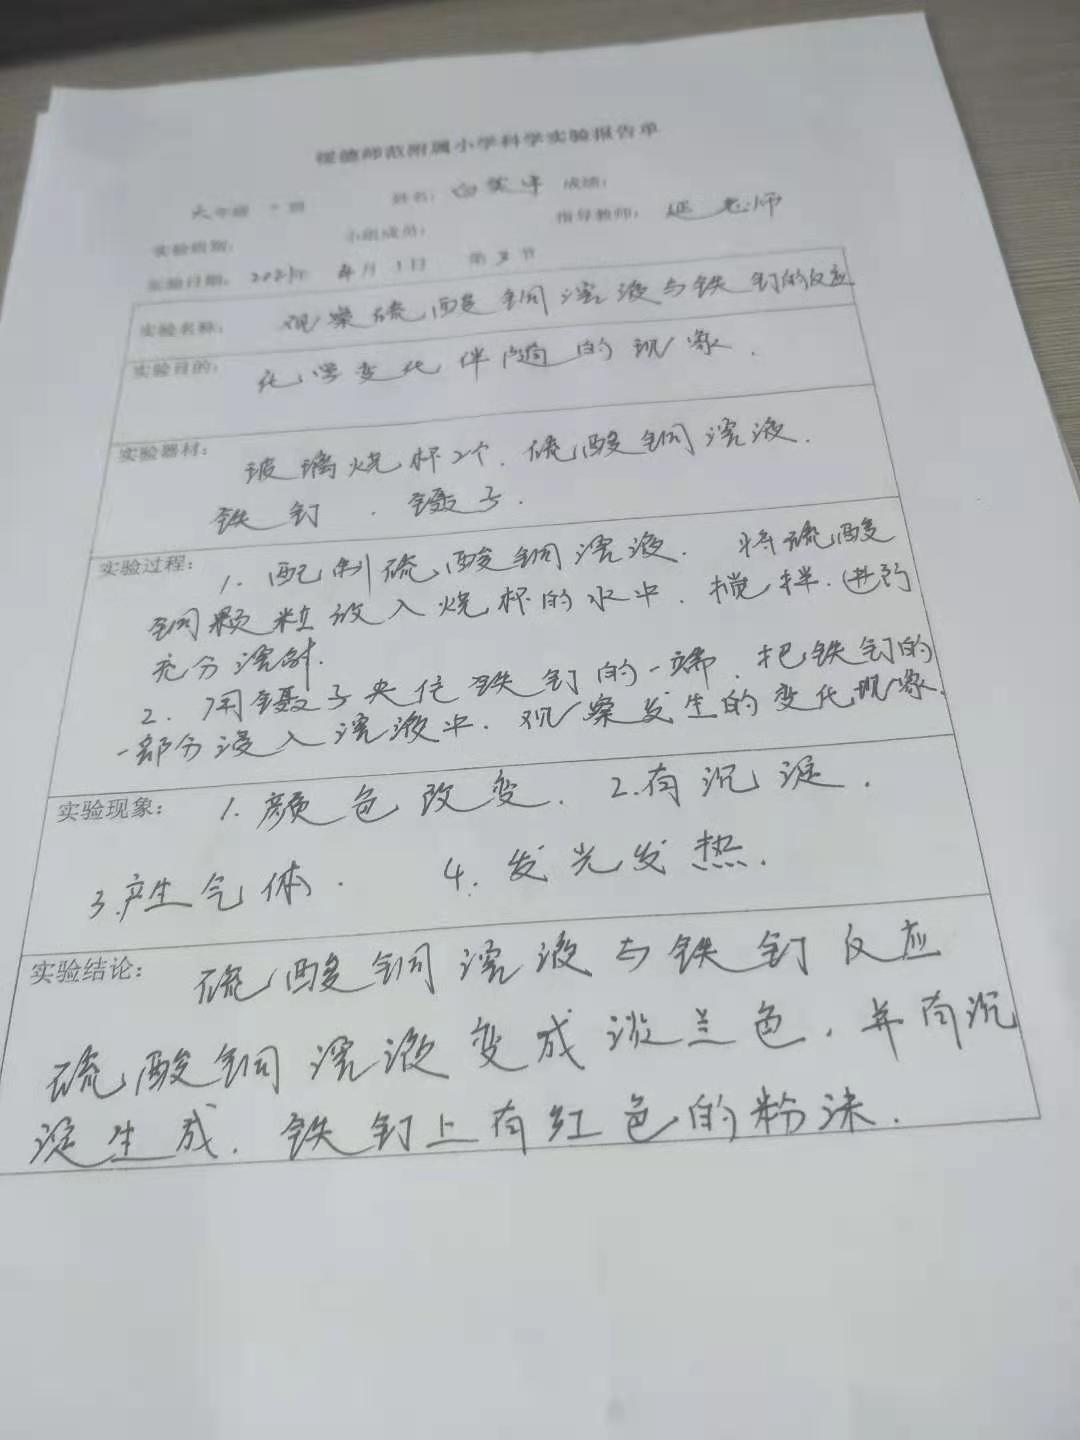 绥德师范附属小学科学实验报告单
六年级 一班 姓名： 成绩：
实验组别： 小组成员： 指导教师： 延老师
实验日期： 2021年 4月1日 第3节
实验名称： 观察硫酸铜溶液与铁钉的反应
实验目的： 化学变化伴随的现象．
实验器材： 玻璃烧杯2个．硫酸铜溶液．
铁钉．镊子．
实验过程： 1．配制硫酸铜溶液． 将硫酸
铜颗粒放入烧杯的水中．搅拌．进行
充分溶解．
2．用镊子夹住铁钉的一端．把铁钉的
一部分浸入溶液中．观察发生的变化现象．
实验现象： 1．颜色改变． 2.有沉淀．
3.产生气体． 4．发光发热．
实验结论： 硫酸铜溶液与铁钉反应
硫酸铜溶液变成淡兰色．并有沉
淀生成．铁钉上有红色的粉沫．